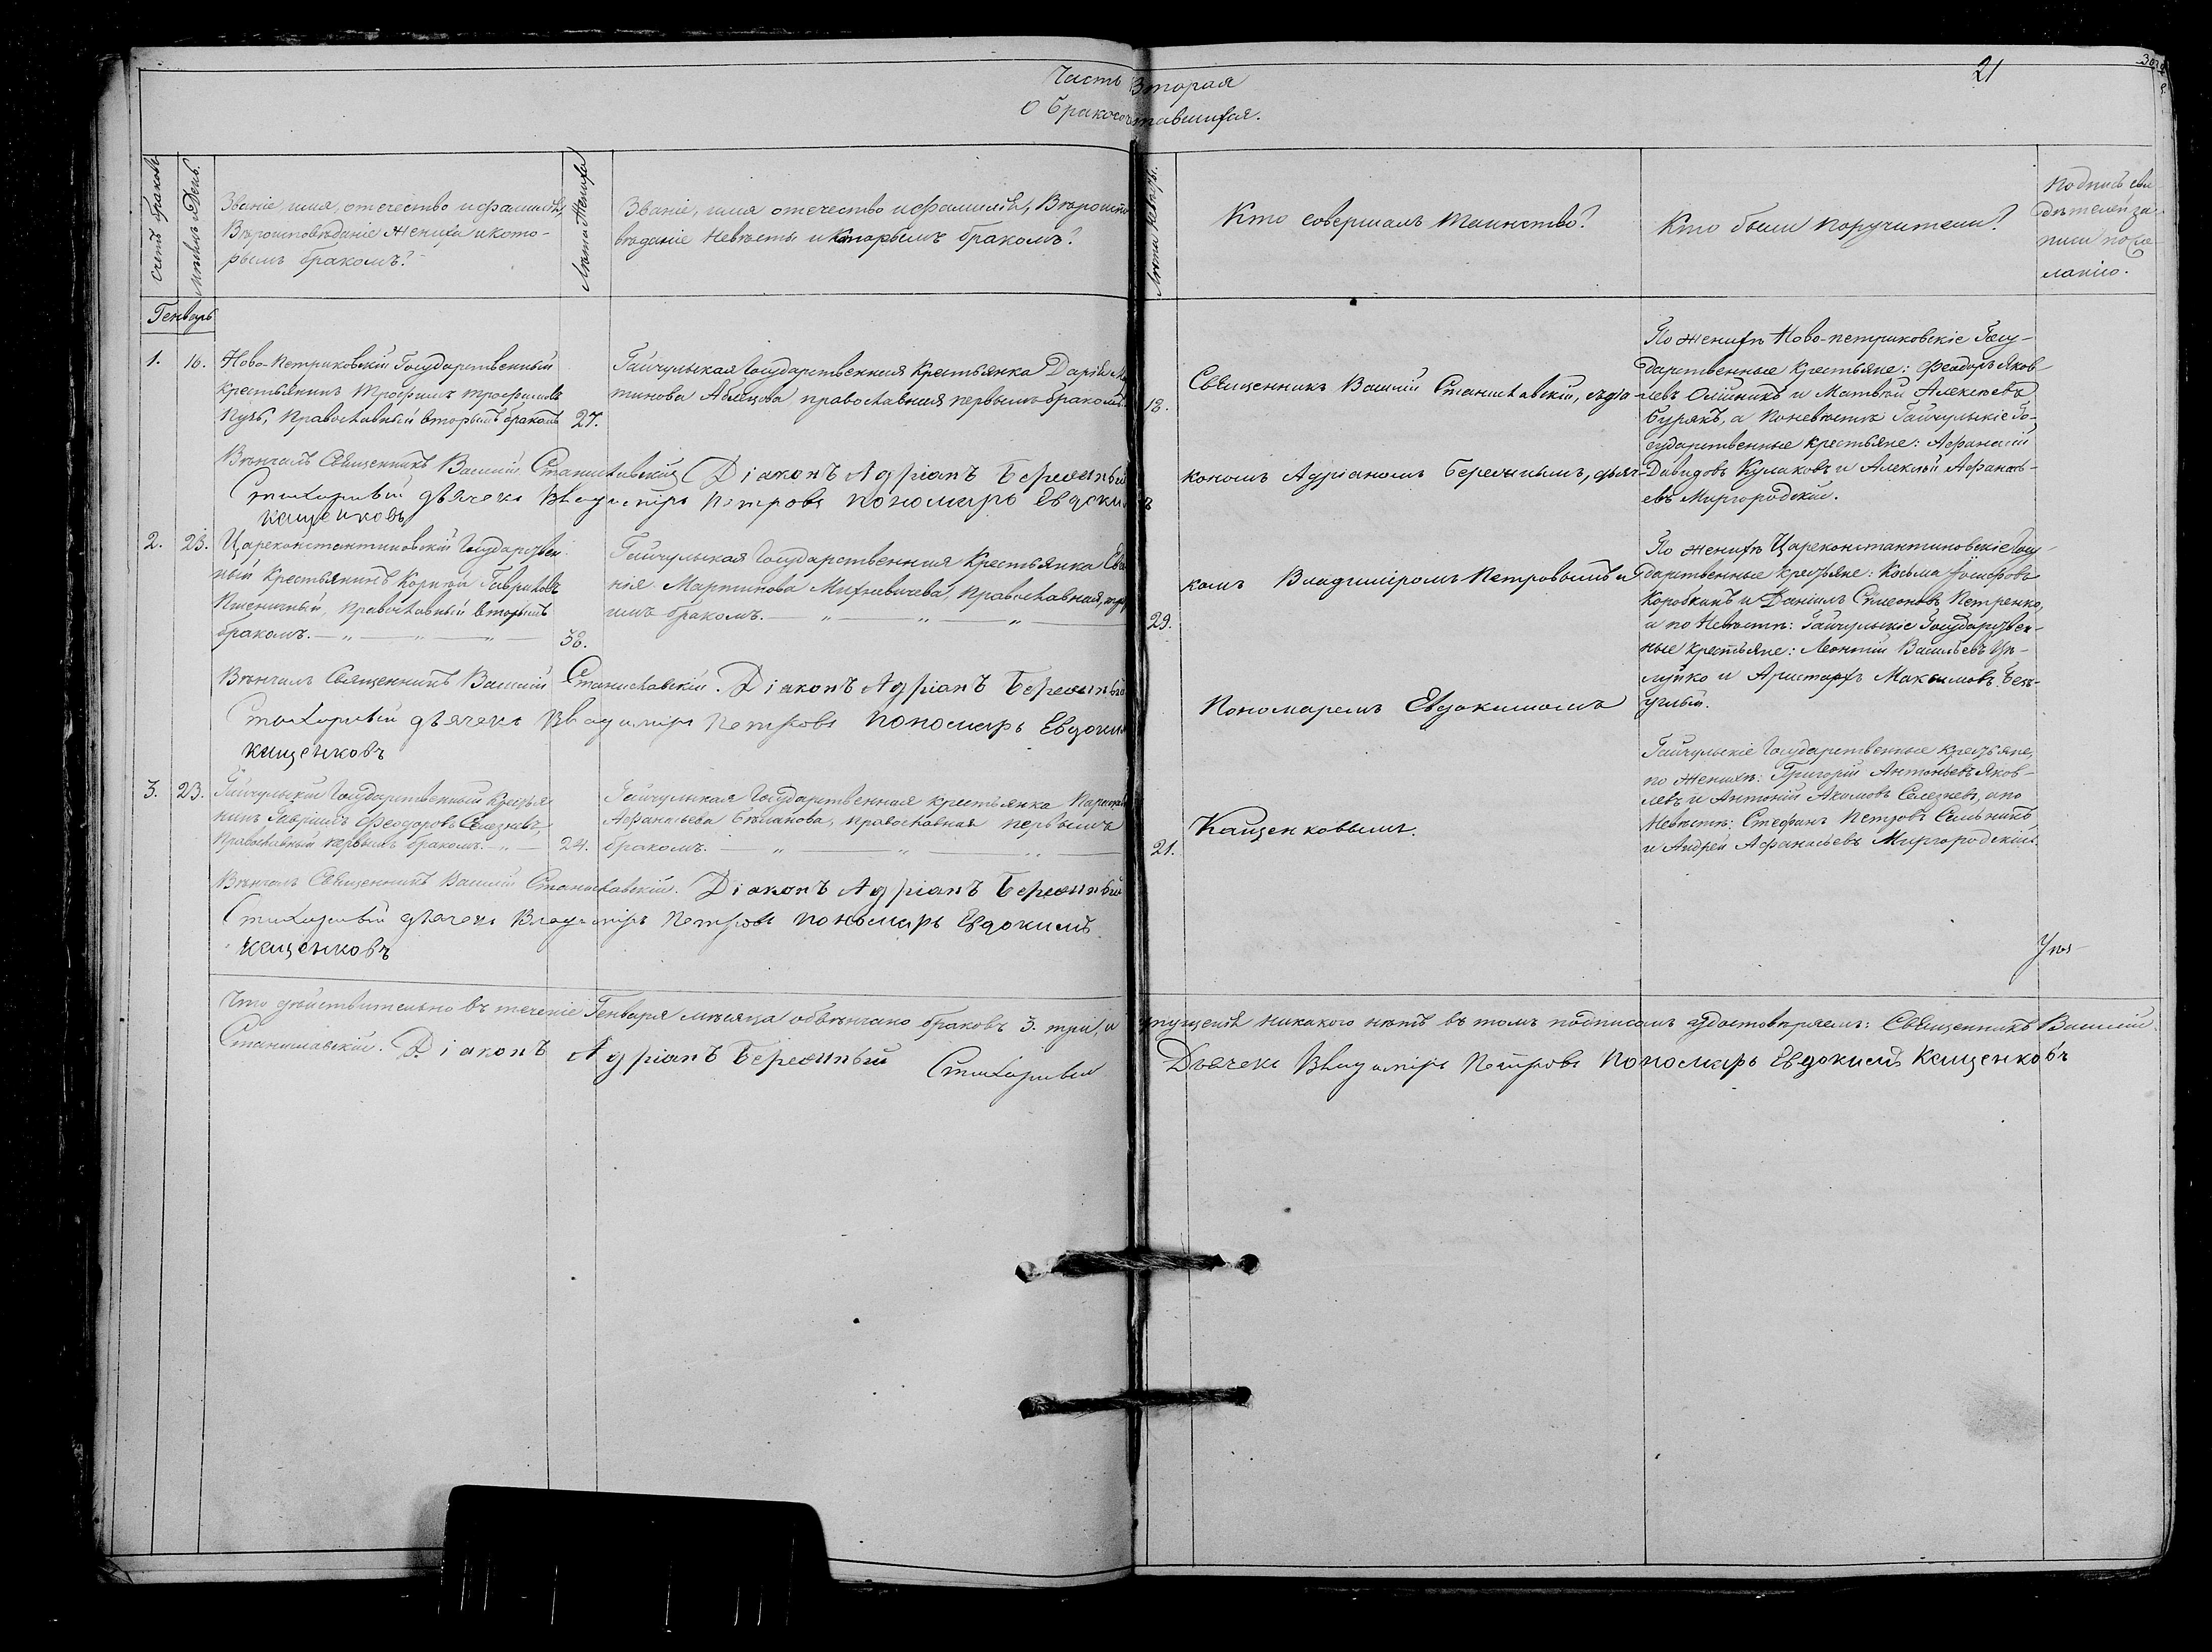 Часть Вторая
О бракосочетавшихся.
21
Счетъ браковъ
Мѣсяцъ и День.
Званіе, имя, отечество и фамилія,
Вѣроисповѣданіе Жениха и кото-
рымъ бракомъ?
Лѣта Жениха
Званіе, имя отечество и фамилія, Вѣроиспо
вѣданіе Невѣсты и которымъ бракомъ?
Лѣта Невѣсты.
Кто совершалъ таинство?
Кто были поручители?
Подпись сви-
дѣтелей за-
писи по же-
ланію.
Генварь
1.
16.
Ново-Петриковскій Государственный
крестьянинъ Трофимъ Трофимовъ
Пугъ, Православный вторымъ бракомъ
27.
Гайчульская Государственная Крестьянка Дарія Ма
тинова Аблецова православная первымъ бракомъ.
18.
Священникъ Василій Станиславскій, съ діа-
По женихѣ Ново-петриковскіе Госу-
дарственные Крестьяне: Феодоръ Яков-
левъ Олійникъ и Матвѣй Алексѣевъ
Бурякъ, а по невѣстѣ Гайчульскіе Го-
сударственные крестьяне: Афанасій
Давидовъ Кулаковъ и Алексѣй Афанась-
евъ Миргородскій.
Вѣнчалъ Священникъ Василій Станиславскій Діаконъ Адріанъ Бережный
Стихарный дьячекъ Владиміръ Петровъ пономарь Евдокимъ
Кащенковъ
кономъ Адріаномъ Бережнымъ, дьяч-
2.
23.
Цареконстантиновскій Государствен-
ный Крестьянинъ Корнѣй Гавриловъ
Пшеничный, Православный вторымъ
бракомъ.
38.
Гайчульская Государственная Крестьянка Евге
нія Мартинова Михневичева, Православная, втор
ымъ бракомъ.
29.
комъ Владиміромъ Петровымъ и
По женихѣ Цареконстантиновскіе Госу-
дарственные крестьяне: Косьма Іосифовъ
Коробкинъ и Даніилъ Симеоновъ Петренко,
а по Невѣстѣ: Гайчульскіе Государствен-
ные крестьяне: Леонтій Васильевъ
и Аристархъ Максимовъ
Вѣнчалъ Священникъ Василій Станиславскій. Діаконъ Адріанъ Бережный
Стихарный дьячекъ Владиміръ Петровъ пономарь Евдокимъ
Кащенковъ
Пономаремъ Евдокимомъ
3.
23.
Гайчульскій Государственный Крестья-
нинъ Гавріилъ Феодоровъ Селезневъ,
Православный первымъ бракомъ.
24.
Гайчульская Государственная крестьянка Параскев
Афанасьева Бѣланова, православная первымъ
бракомъ.
21.
Кащенковымъ.
Гайчульскіе Государственные крестьяне,
по женихѣ: Григорій Антоньевъ Яков-
левъ и Антоній Акимовъ Селезневъ, а по
Невѣстѣ: Стефанъ Петровъ Сальникъ
и Андрей Афанасьевъ Миргородскій.
Вѣнчалъ Священникъ Василій Станиславскій. Діаконъ Адріанъ Бережный
Стихарный дьячекъ Владиміръ Петровъ пономарь Евдокимъ
Кащенковъ
Что дѣйствительно въ теченіе Генваря мѣсяца обвѣнчано браковъ 3. три, и упущенія никакого нѣтъ въ томъ подписомъ удостовѣряемъ: Священникъ Василій
Станиславскій. Діаконъ Адріанъ Бережный Стихарный Дьячекъ Владиміръ Петровъ Пономарь Евдокимъ Кащенковъ